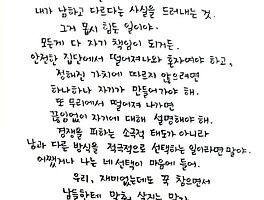 내가 남하고 다르다는 사실을 드러내는 것.
그거 몹시 힘든 일이야.
모든게 다 자기 책임이 되거든.
안전한 집단에서 떨어져나와 혼자여야 하고,
정해진 가치에 따르지 않으려면
하나하나 자기가 만들어가야 해.
또 무리에서 떨어져 나가면
끊임없이 자기에 대해 설명해야 해.
경쟁을 피하는 소극적 태도가 아니라
남과 다른 방식을 적극적으로 선택하는 일이라면 말야.
어쨌거나 나는 네 선택이 마음에 들어.
우리, 재미없는데도 꾹 참으면서
남들한테 맞춰 살지는 말자.